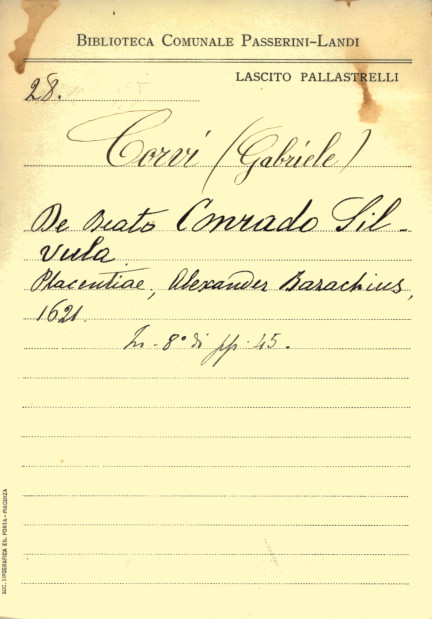 BIBLIOTECA COMUNALE PASSERINI-LANDI
LASCITO PALLASTRELLI
28.
Corvi (Gabriele)
De Beato Conrado Sil-
vula
Placentiae, Alexander Barachius,
1621.
In-8° di pp. 45.
SOC. TIPOGRAFICA ED. PORTA - PIACENZA